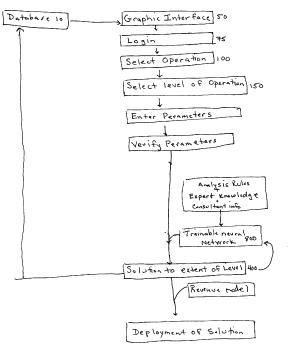 Database 10
Graphic Interface 50
Login 75
Select Operation 100
Select level of Operation 150
Enter Parameters
Verify Parameters
Analysis Rules
+
Expert Knowledge
+
Consultant info
Trainable neural
Network 800
Solution to extent of Level 400
Revenue model
Deployment of Solution